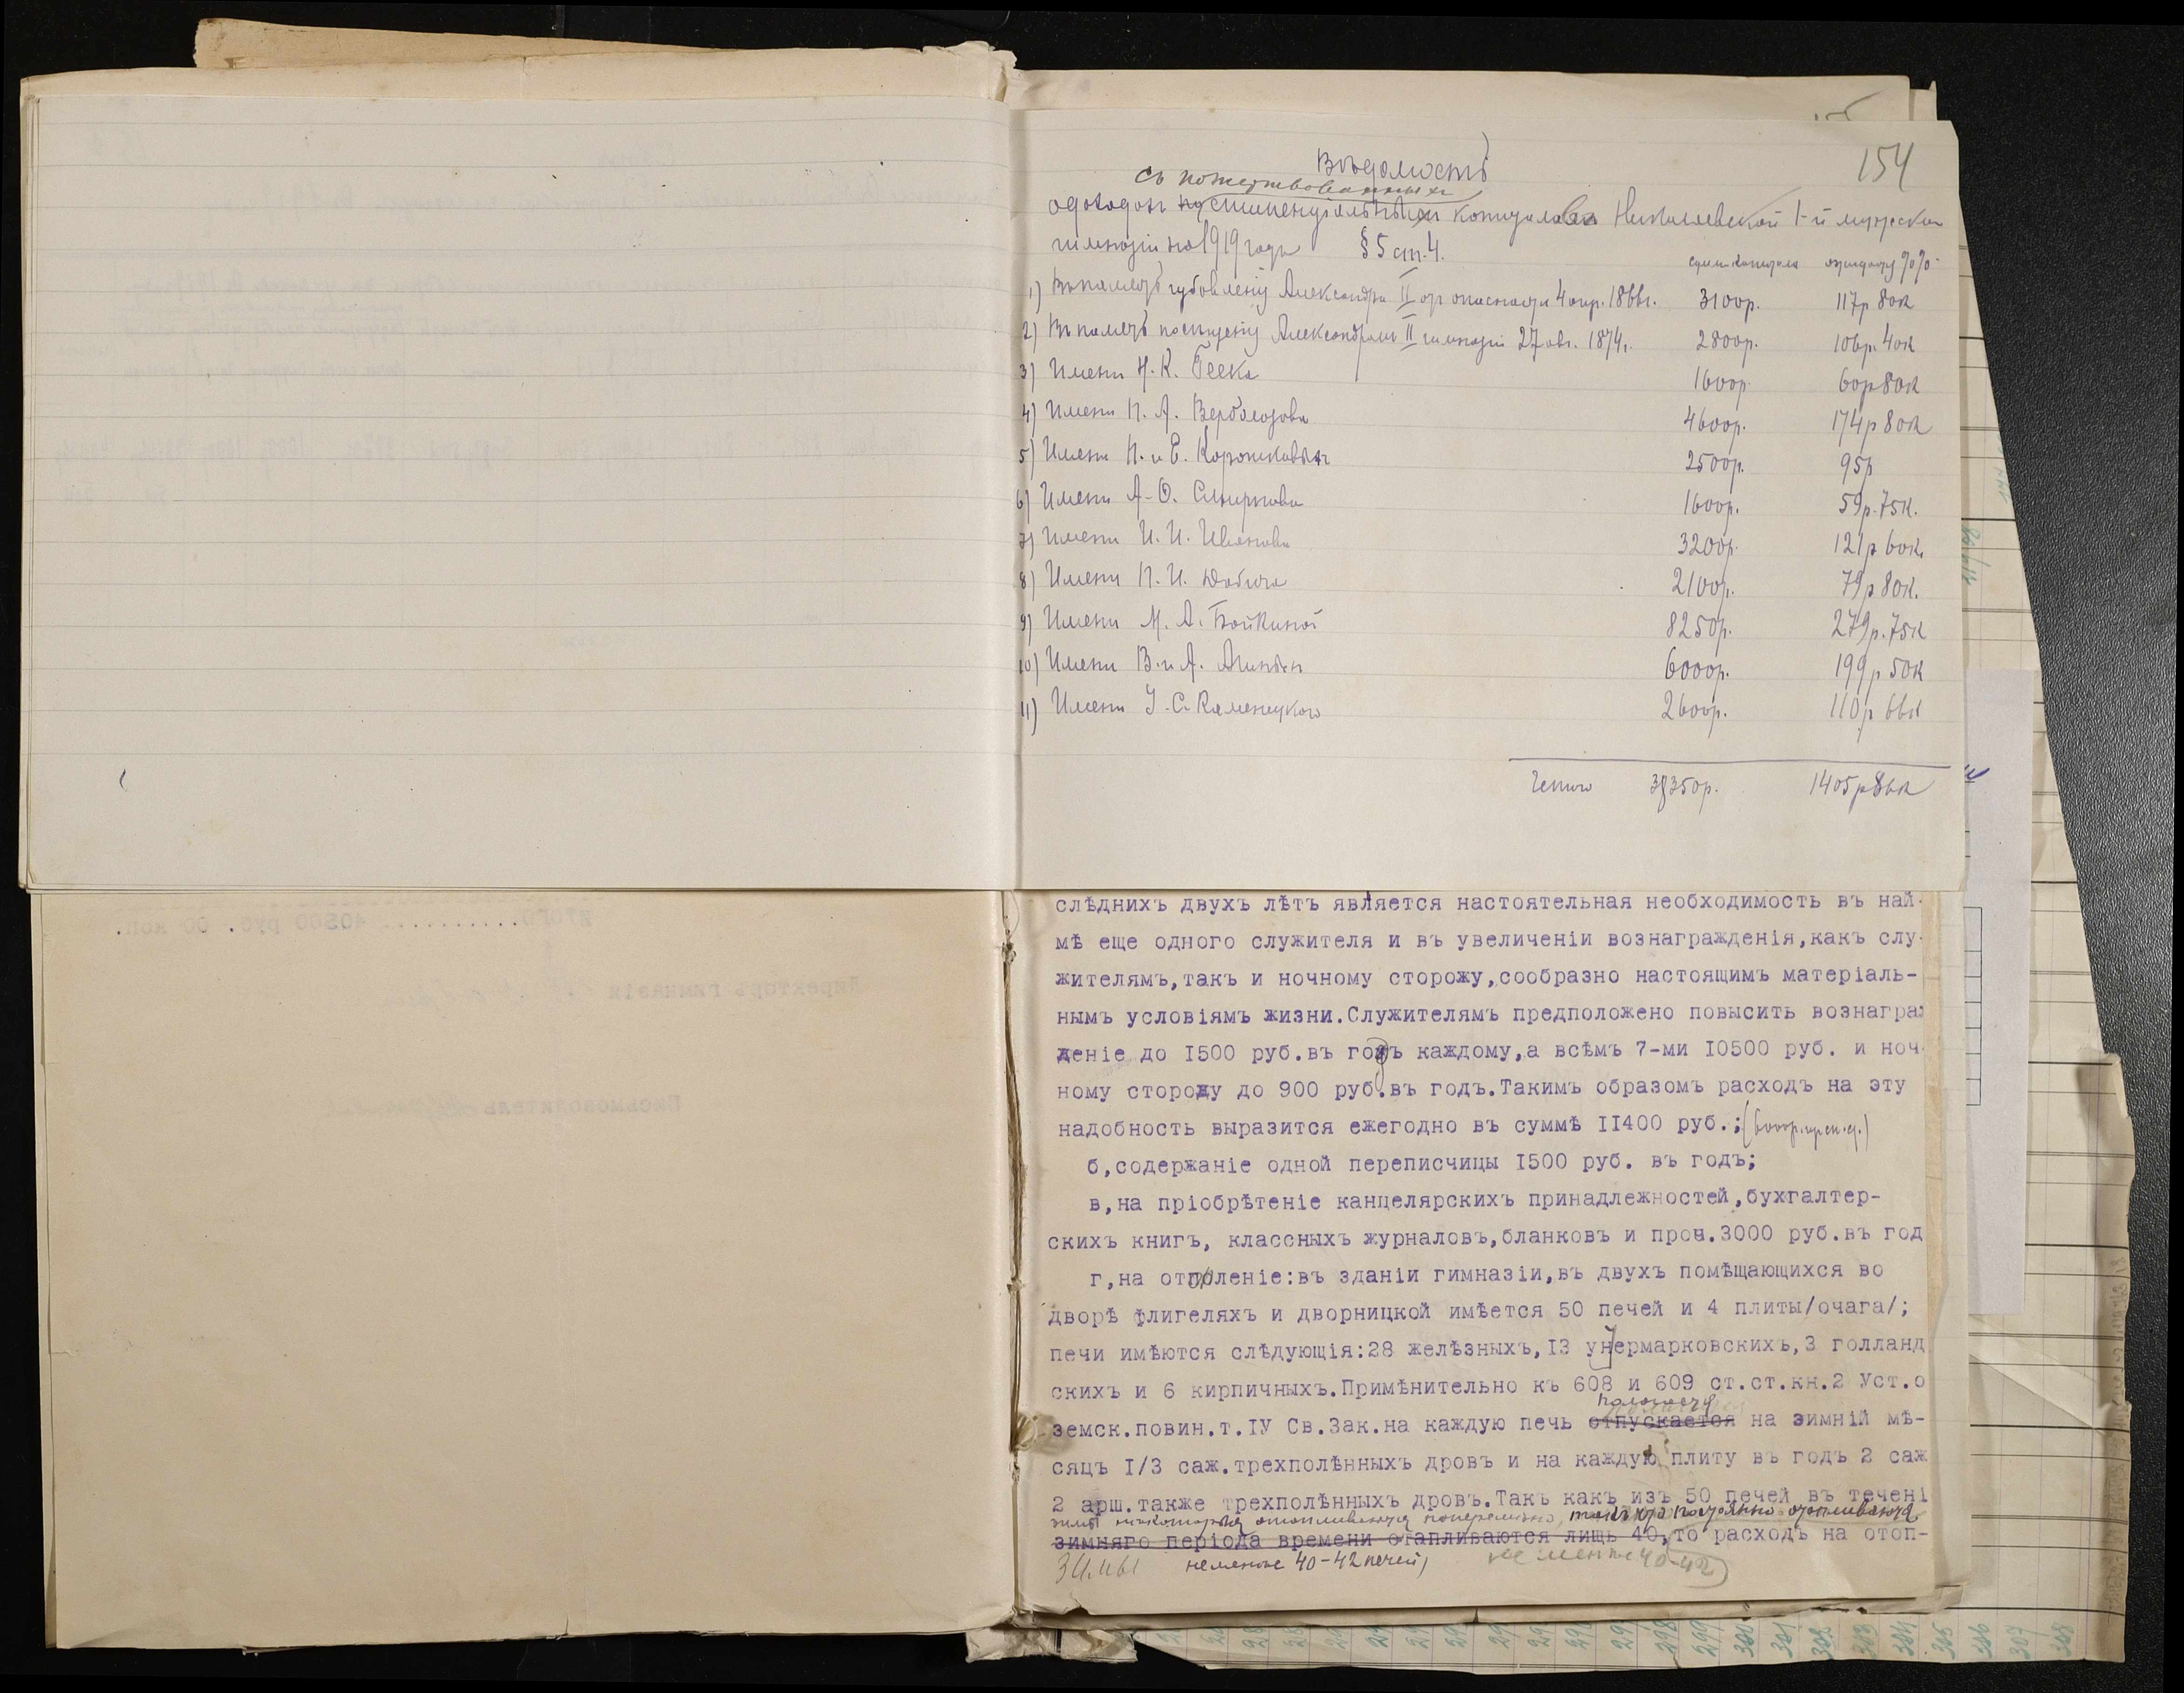 154
Вѣдомость
съ пожертвованныхъ
о доходахъ стипендіальныхъ капиталовъ Николаевской 1-й мужской
гимназіи на 1919 годъ § 5 ст. 4.
сумма капитала %%
1) Въ память избавленія Александра II отъ опасности 4 апр. 1866г. 3100р. 117р 80к
2) Въ память посѣщенія Александромъ II гимназіи 27 авг. 1874г. 2800р. 106р. 40к
3) Имени Н. К. Беека 1600р. 60р 80к
4) Имени П. А. Верболозова 4600р. 174р 80к
5) Имени П. и Е. Коротковыхъ 2500р. 95р
6) Имени А. О. Смирнова 1600р. 59р. 75к.
7) Имени И. И. Иванова 3200р. 121р 60к.
8) Имени П. И. Добича 2100р. 79р 80к.
9) Имени М. А. Бойкиной 8250р. 279р. 75к
10) Имени В. и А. 6000р. 199р 50к
11) Имени У. С. Каменецкаго 2600р. 110р 66к
Итого 38350р. 1405р 86к
слѣднихъ двухъ лѣтъ является настоятельная необходимость въ най-
мѣ еще одного служителя и въ увеличеніи вознагражденія,какъ слу-
жителямъ,такъ и ночному сторожу,сообразно настоящимъ матеріаль-
нымъ условіямъ жизни.Служителямъ предположено повысить вознаграж
деніе до I500 руб.въ годъ каждому,а всѣмъ 7-ми I0500 руб. и ноч-
ному стороду до 900 руб.въ годъ.Такимъ образомъ расходъ на эту
надобность выразится ежегодно въ суммѣ II400 руб.;
б,содержаніе одной переписчицы I500 руб. въ годъ;
в,на пріобрѣтеніе канцелярскихъ принадлежностей,бухгалтер-
скихъ книгъ, классныхъ журналовъ,бланковъ и проч.3000 руб.въ год
г,на отопленіе:въ зданіи гимназіи,въ двухъ помѣщающихся во
дворѣ флигеляхъ и дворницкой имѣется 50 печей и 4 плиты/очага/;
печи имѣются слѣдующія:28 желѣзныхъ,I3 унтермарковскихъ,3 голланд
скихъ и 6 кирпичныхъ.Примѣнительно къ 608 и 609 ст.ст.кн.2 Уст.о
полагается
земск.повин.т.IУ Св.Зак.на каждую печь отпускается на зимній мѣ-
сяцъ I/3 саж.трехполѣнныхъ дровъ и на каждую плиту въ годъ 2 саж
2 арш.также трехполѣнныхъ дровъ.Такъ какъ изъ 50 печей въ течені
зимы нѣкоторыя отапливаются поперемѣнно, такъ что постоянно отапливаются
зимняго періода времени отапливаются лишь 40,то расходъ на отоп-
зимы не менѣе 40-42 печей, не менѣе 40-42